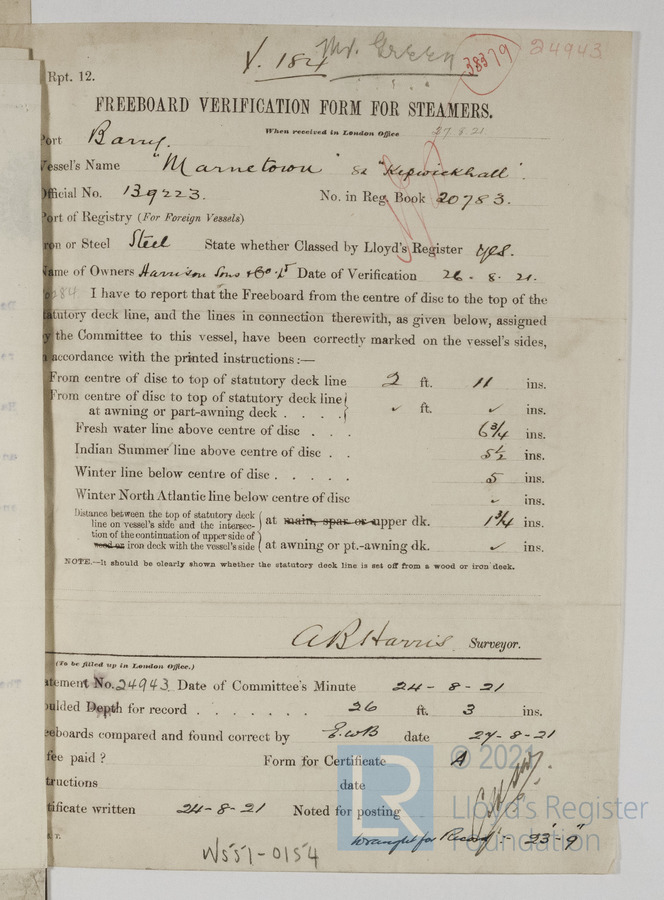 V. 184 Mr. Green 38379 24943
Rpt. 12.
FREEBOARD VERIFICATION FORM FOR STEAMERS.
When received in London Office 27.8.21
ort Barry.
essel's Name "Marnetown" "Kepwickhall".
fficial No. 139223. No. in Reg. Book 20783.
ort of Registry (For Foreign Vessels)
ron or Steel Steel State whether Classed by Lloyd's Register Yes.
ame of Owners Harrison Sons & Co. Lt Date of Verification 26 - 8. 21.
284 I have to report that the Freeboard from the centre of disc to the top of the
tatutory deck line, and the lines in connection therewith, as given below, assigned
y the Committee to this vessel, have been correctly marked on the vessel's sides,
accordance with the printed instructions:—
From centre of disc to top of statutory deck line 2 ft. 11 ins.
From centre of disc to top of statutory deck line
at awning or part-awning deck . . . . ✓ ft. ✓ ins.
Fresh water line above centre of disc . . . 6 3/4 ins.
Indian Summer line above centre of disc . . 5 1/2 ins.
Winter line below centre of disc . . . . . 5 ins.
Winter North Atlantic line below centre of disc ✓ ins.
Distance between the top of statutory deck
line on vessel's side and the intersec- at main, spar or upper dk. 1 3/4 ins.
tion of the continuation of upper side of
wood or iron deck with the vessel's side at awning or pt.-awning dk. ✓ ins.
NOTE.—It should be clearly shown whether the statutory deck line is set off from a wood or iron deck.
A B Harris Surveyor.
(To be filled up in London Office.)
atement No. 24943 Date of Committee's Minute 24 - 8 - 21
oulded Depth for record . . . . . . . 26 ft. 3 ins.
eeboards compared and found correct by E.W.B date 27-8-21
fee paid ? Form for Certificate A
tructions date
tificate written 24-8-21 Noted for posting
Wrought for Record :- 23' 9"
W551-0154
LR
© 2021
Lloyd's Register
Foundation